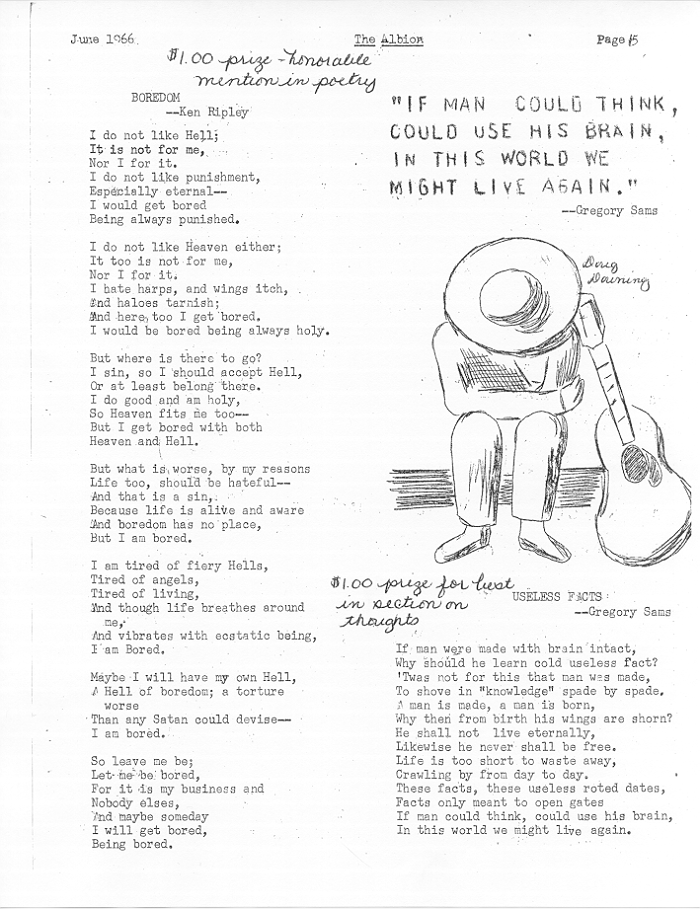 June 1966
The Albion
Page 15
$1.00 prize - honorable
mention in poetry
BOREDOM
--Ken Ripley
I do not like Hell;
It is not for me,
Nor I for it.
I do not like punishment,
Especially eternal--
I would get bored
Being always punished.
I do not like Heaven either;
It too is not for me,
Nor I for it.
I hate harps, and wings itch,
And haloes tarnish;
And here, too I get bored.
I would be bored being always holy.
But where is there to go?
I sin, so I should accept Hell,
Or at least belong there.
I do good and am holy,
So Heaven fits me too--
But I get bored with both
Heaven and Hell.
But what is worse, by my reasons
Life too, should be hateful--
And that is a sin,
Because life is alive and aware
And boredom has no place,
But I am bored.
I am tired of fiery Hells,
Tired of angels,
Tired of living,
And though life breathes around
me,
And vibrates with ecstatic being,
I am Bored.
Maybe I will have my own Hell,
A Hell of boredom; a torture
worse
Than any Satan could devise--
I am bored.
So leave me be;
Let me be bored,
For it is my business and
Nobody elses,
And maybe someday
I will get bored,
Being bored.
"IF MAN COULD THINK,
COULD USE HIS BRAIN,
IN THIS WORLD WE
MIGHT LIVE AGAIN."
--Gregory Sams
Doug
Downing
$1.00 prize for best
in section on
thoughts
USELESS FACTS
--Gregory Sams
If man were made with brain intact,
Why should he learn cold useless fact?
'Twas not for this that man was made,
To shove in "knowledge" spade by spade.
A man is made, a man is born,
Why then from birth his wings are shorn?
He shall not live eternally,
Likewise he never shall be free.
Life is too short to waste away,
Crawling by from day to day.
These facts, these useless roted dates,
Facts only meant to open gates
If man could think, could use his brain,
In this world we might live again.